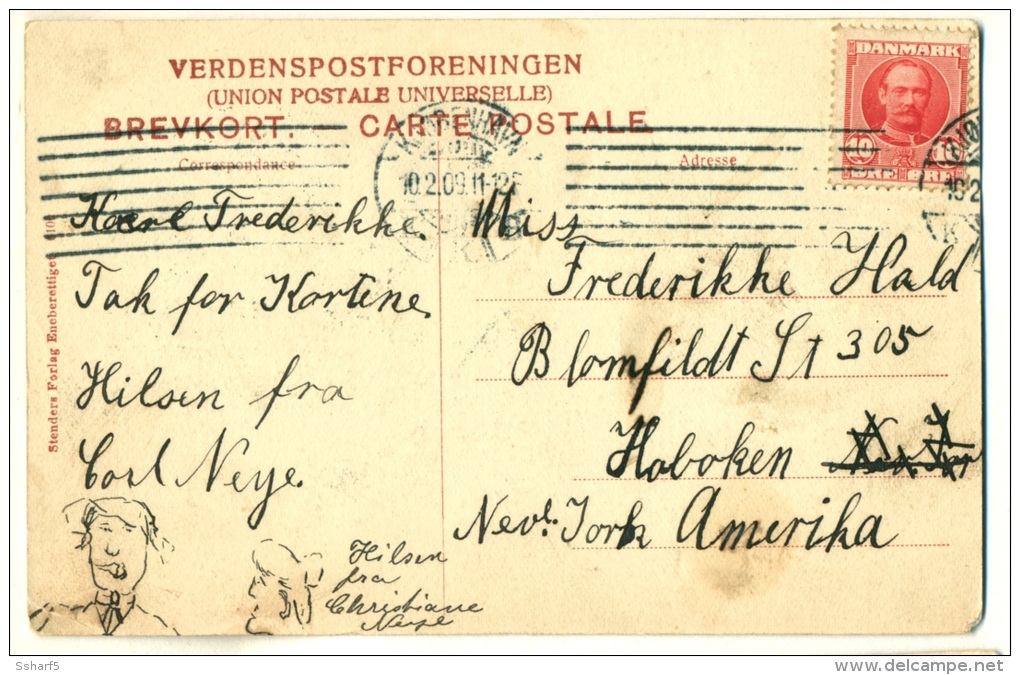 VERDENSPOSTFORENINGEN
(UNION POSTALE UNIVERSELLE)
BREVKORT. CARTE POSTALE
Correspondance
Adresse
DANMARK
10 10
ØRE ØRE
10.2.09.11-12F
Stenders Forlag Eneberettiget
Kære Frederikke.
Tak for Kortene
Hilsen fra
Carl Neye.
Hilsen
fra
Christiane
Neye
Miss
Frederikke Hald
Blomfildt St 305
Hoboken
Nev. Jork Amerika
Ssharf5
www.delcampe.net